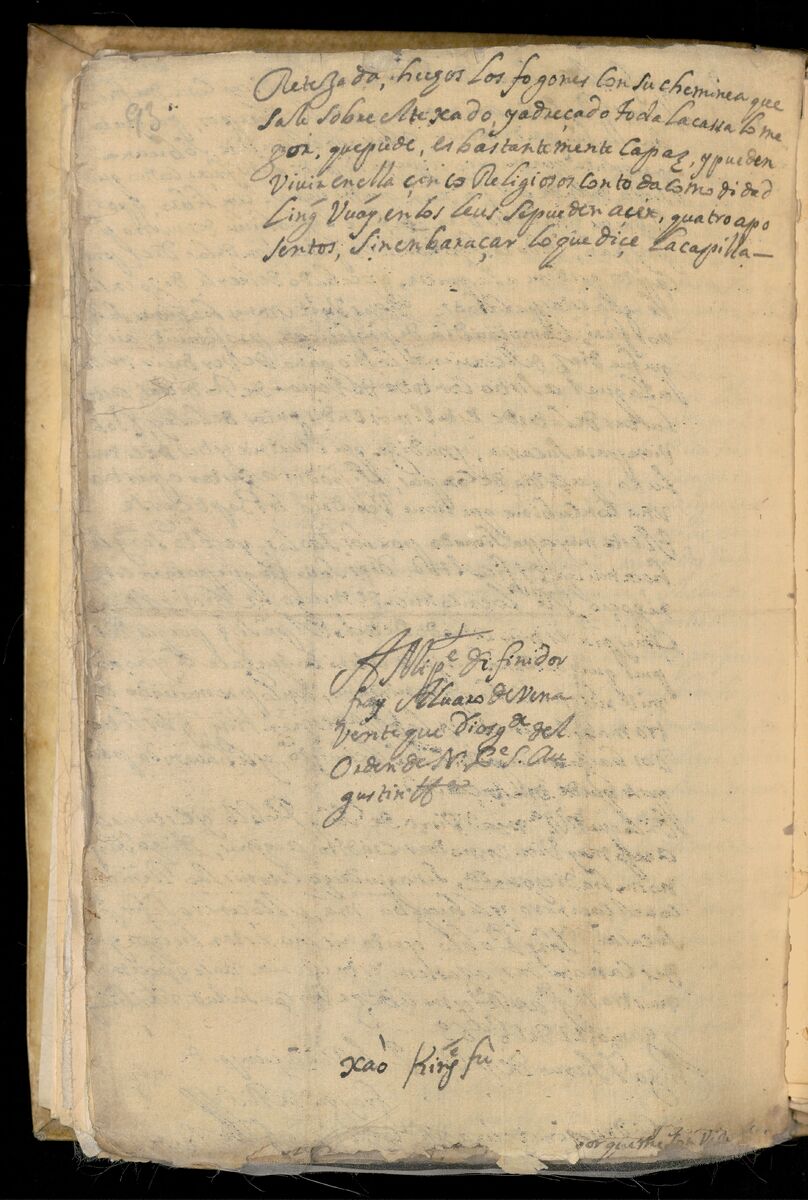 93
Retezada, hiezos los fogones con su cheminea que
sale sobre el texado, y adreçado toda la cassa lo me
por, que pude, es bastantemente capaz, y pueden
vivir en ella çinco Religiosos con toda comodidad
en los leus se pueden açer, quatro apo
sentos, sin enbaraçar lo que diçe la capilla—
A Mi pe difinidor
fray Alvaro de Vena
vente que Dios gde del
Orden de N. Pe S. Au
gustin
xaò Kinģ fù
porque me